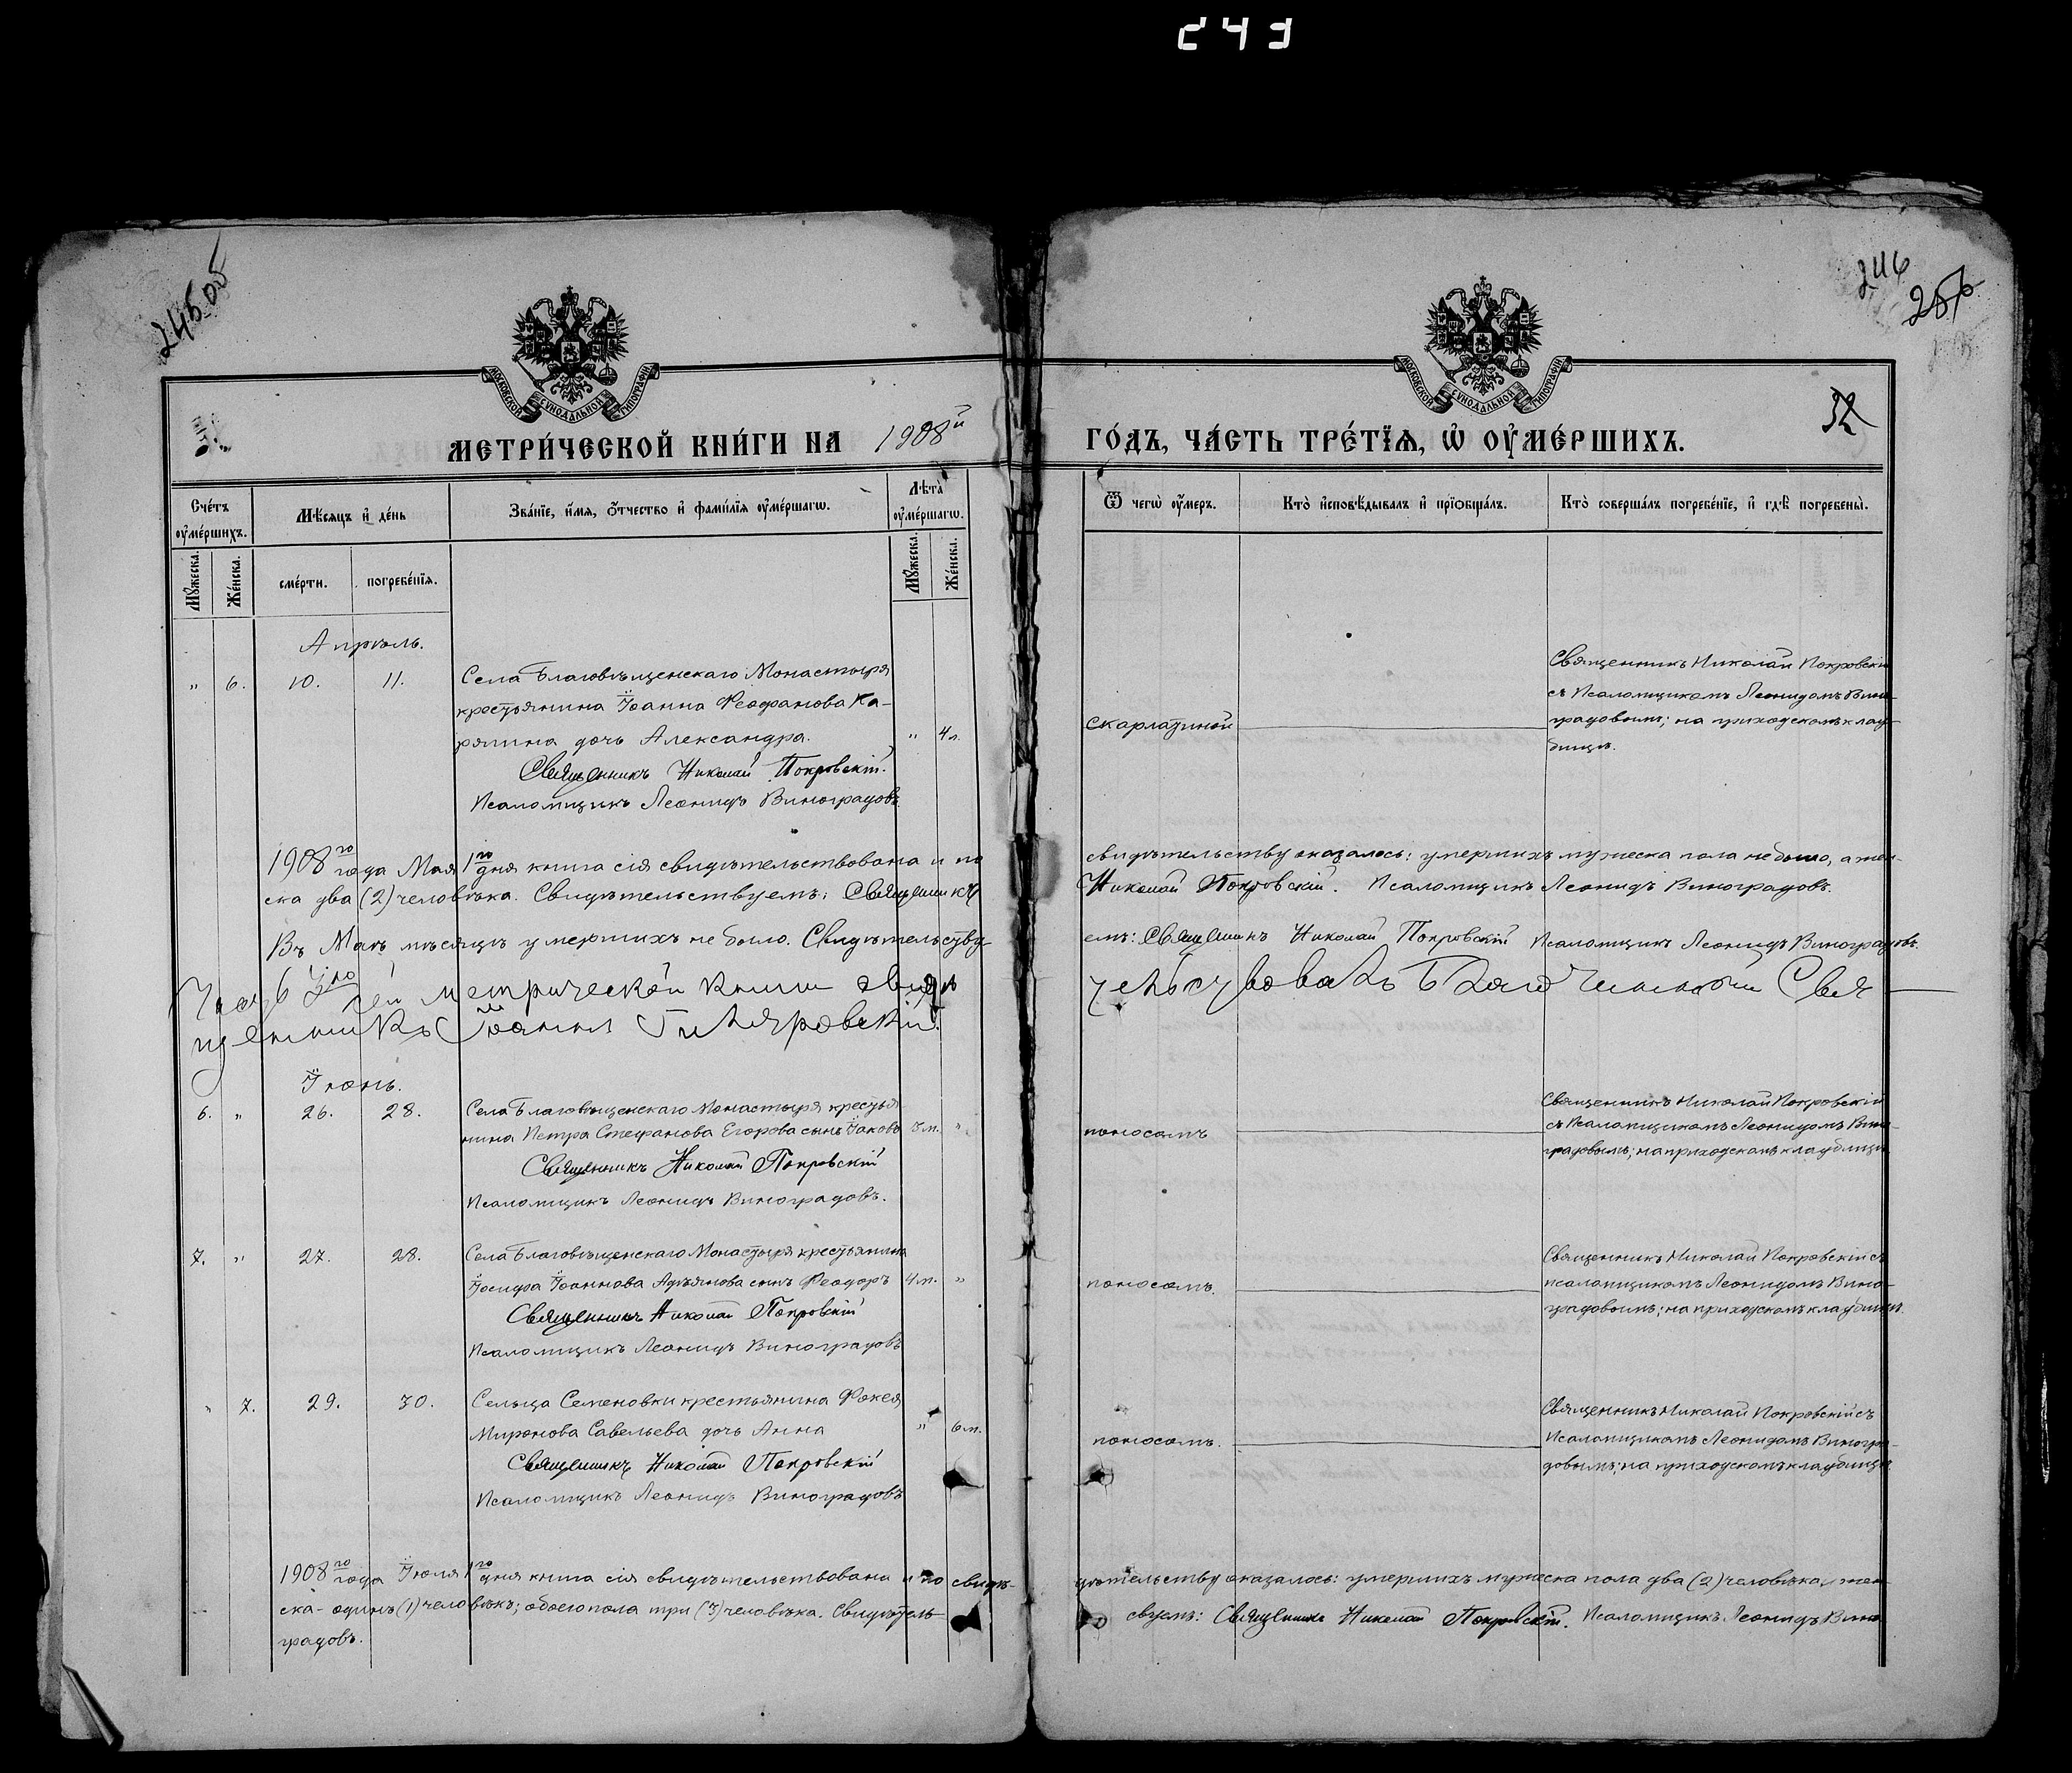 243
245 об
246
257
32
МОСКОВСКОЙ СѴНОДАЛЬНОЙ ТИПОГРАФІИ
МОСКОВСКОЙ СѴНОДАЛЬНОЙ ТИПОГРАФІИ
МЕТРИ́ЧЕСКОЙ КНИ́ГИ НА 1908й ГО́ДЪ, ЧА́СТЬ ТРЕ́ТЇѦ, Ѡ҆ ОУ҆МЕ́РШИХЪ.
Сче́тъ оу҆ме́ршихъ.
Мѣ́сяцъ и҆ де́нь
Зва́нїе, и҆́мя, ѻ҆́тчество и҆ фами́лїя оу҆ме́ршагѡ.
Лѣ́та оу҆ме́ршагѡ.
Ѿ чегѡ̀ оу҆́меръ.
Кто̀ и҆сповѣ́дывалъ и҆ прїѻбща́лъ.
Кто̀ соверша́лъ погребе́нїе, и҆ гдѣ̀ погребены̀.
Мꙋ́жеска.
Же́нска.
сме́рти.
погребе́нїя.
Мꙋ́жеска.
Же́нска.
Апрѣль.
„ 6. 10. 11. Села Благовѣщенскаго Монастыря
крестьянина Іоанна Феофанова Ка-
рялина дочь Александра. „ 4 л.
Священникъ Николай Покровскій.
Псаломщикъ Леонидъ Виноградовъ
скарлатиной
Священникъ Николай Покровскій
съ Псаломщикомъ Леонидомъ Вино-
градовымъ; на приходскомъ клад-
бищѣ.
1908го года Мая 1го дня книга сія свидѣтельствована и по свидѣтельству оказалось: умершихъ мужеска пола не было, а жен-
ска два (2) человѣка. Свидѣтельствуемъ: Священникъ Николай Покровскій. Псаломщикъ Леонидъ Виноградовъ.
Въ Маѣ мѣсяцѣ умершихъ не было. Свидѣтельству- емъ: Священникъ Николай Покровскій Псаломщикъ Леонидъ Виноградовъ.
сей метрической книги свидѣ тельствовалъ Благочинный Свя
щенникъ Іоаннъ Гиляровскій.
Іюнь.
6. „ 26. 28. Села Благовѣщенскаго Монастыря крестья
нина Петра Стефанова Егорова сынъ Іаковъ 3 м. „
Священникъ Николай Покровскій
Псаломщикъ Леонидъ Виноградовъ.
поносомъ
Священникъ Николай Покровскій
съ Псаломщикомъ Леонидомъ Вино-
градовымъ; на приходскомъ кладбищѣ
7. „ 27. 28. Села Благовѣщенскаго Монастыря крестьянина
Іосифа Іоаннова Адрьянова сынъ Феодоръ 4 м. „
Священникъ Николай Покровскій
Псаломщикъ Леонидъ Виноградовъ
поносомъ.
Священникъ Николай Покровскій съ
псаломщикомъ Леонидомъ Вино-
градовымъ; на приходскомъ кладбищѣ.
„ 7. 29. 30. Сельца Семеновки крестьянина Фокея
Миронова Савельева дочь Анна „ 6 м.
Священникъ Николай Покровскій
Псаломщикъ Леонидъ Виноградовъ
поносомъ.
Священникъ Николай Покровскій съ
Псаломщикомъ Леонидомъ Виногра-
довымъ; на приходскомъ кладбищѣ.
1908го года Іюля 1го дня книга сія свидѣтельствована и по свидѣ- тельству оказалось: умершихъ мужеска пола два (2) человѣка, жен-
ска - одинъ (1) человѣкъ; обоего пола три (3) человѣка. Свидѣтель- ствуемъ: Священникъ Николай Покровскій. Псаломщикъ Леонидъ Вино
градовъ.